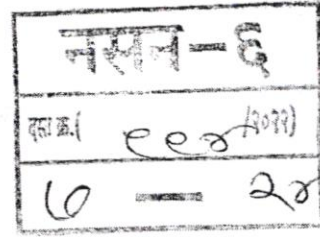 नसन-६
दस्त क्र.( ९९४ /२०२२)
७ — २४